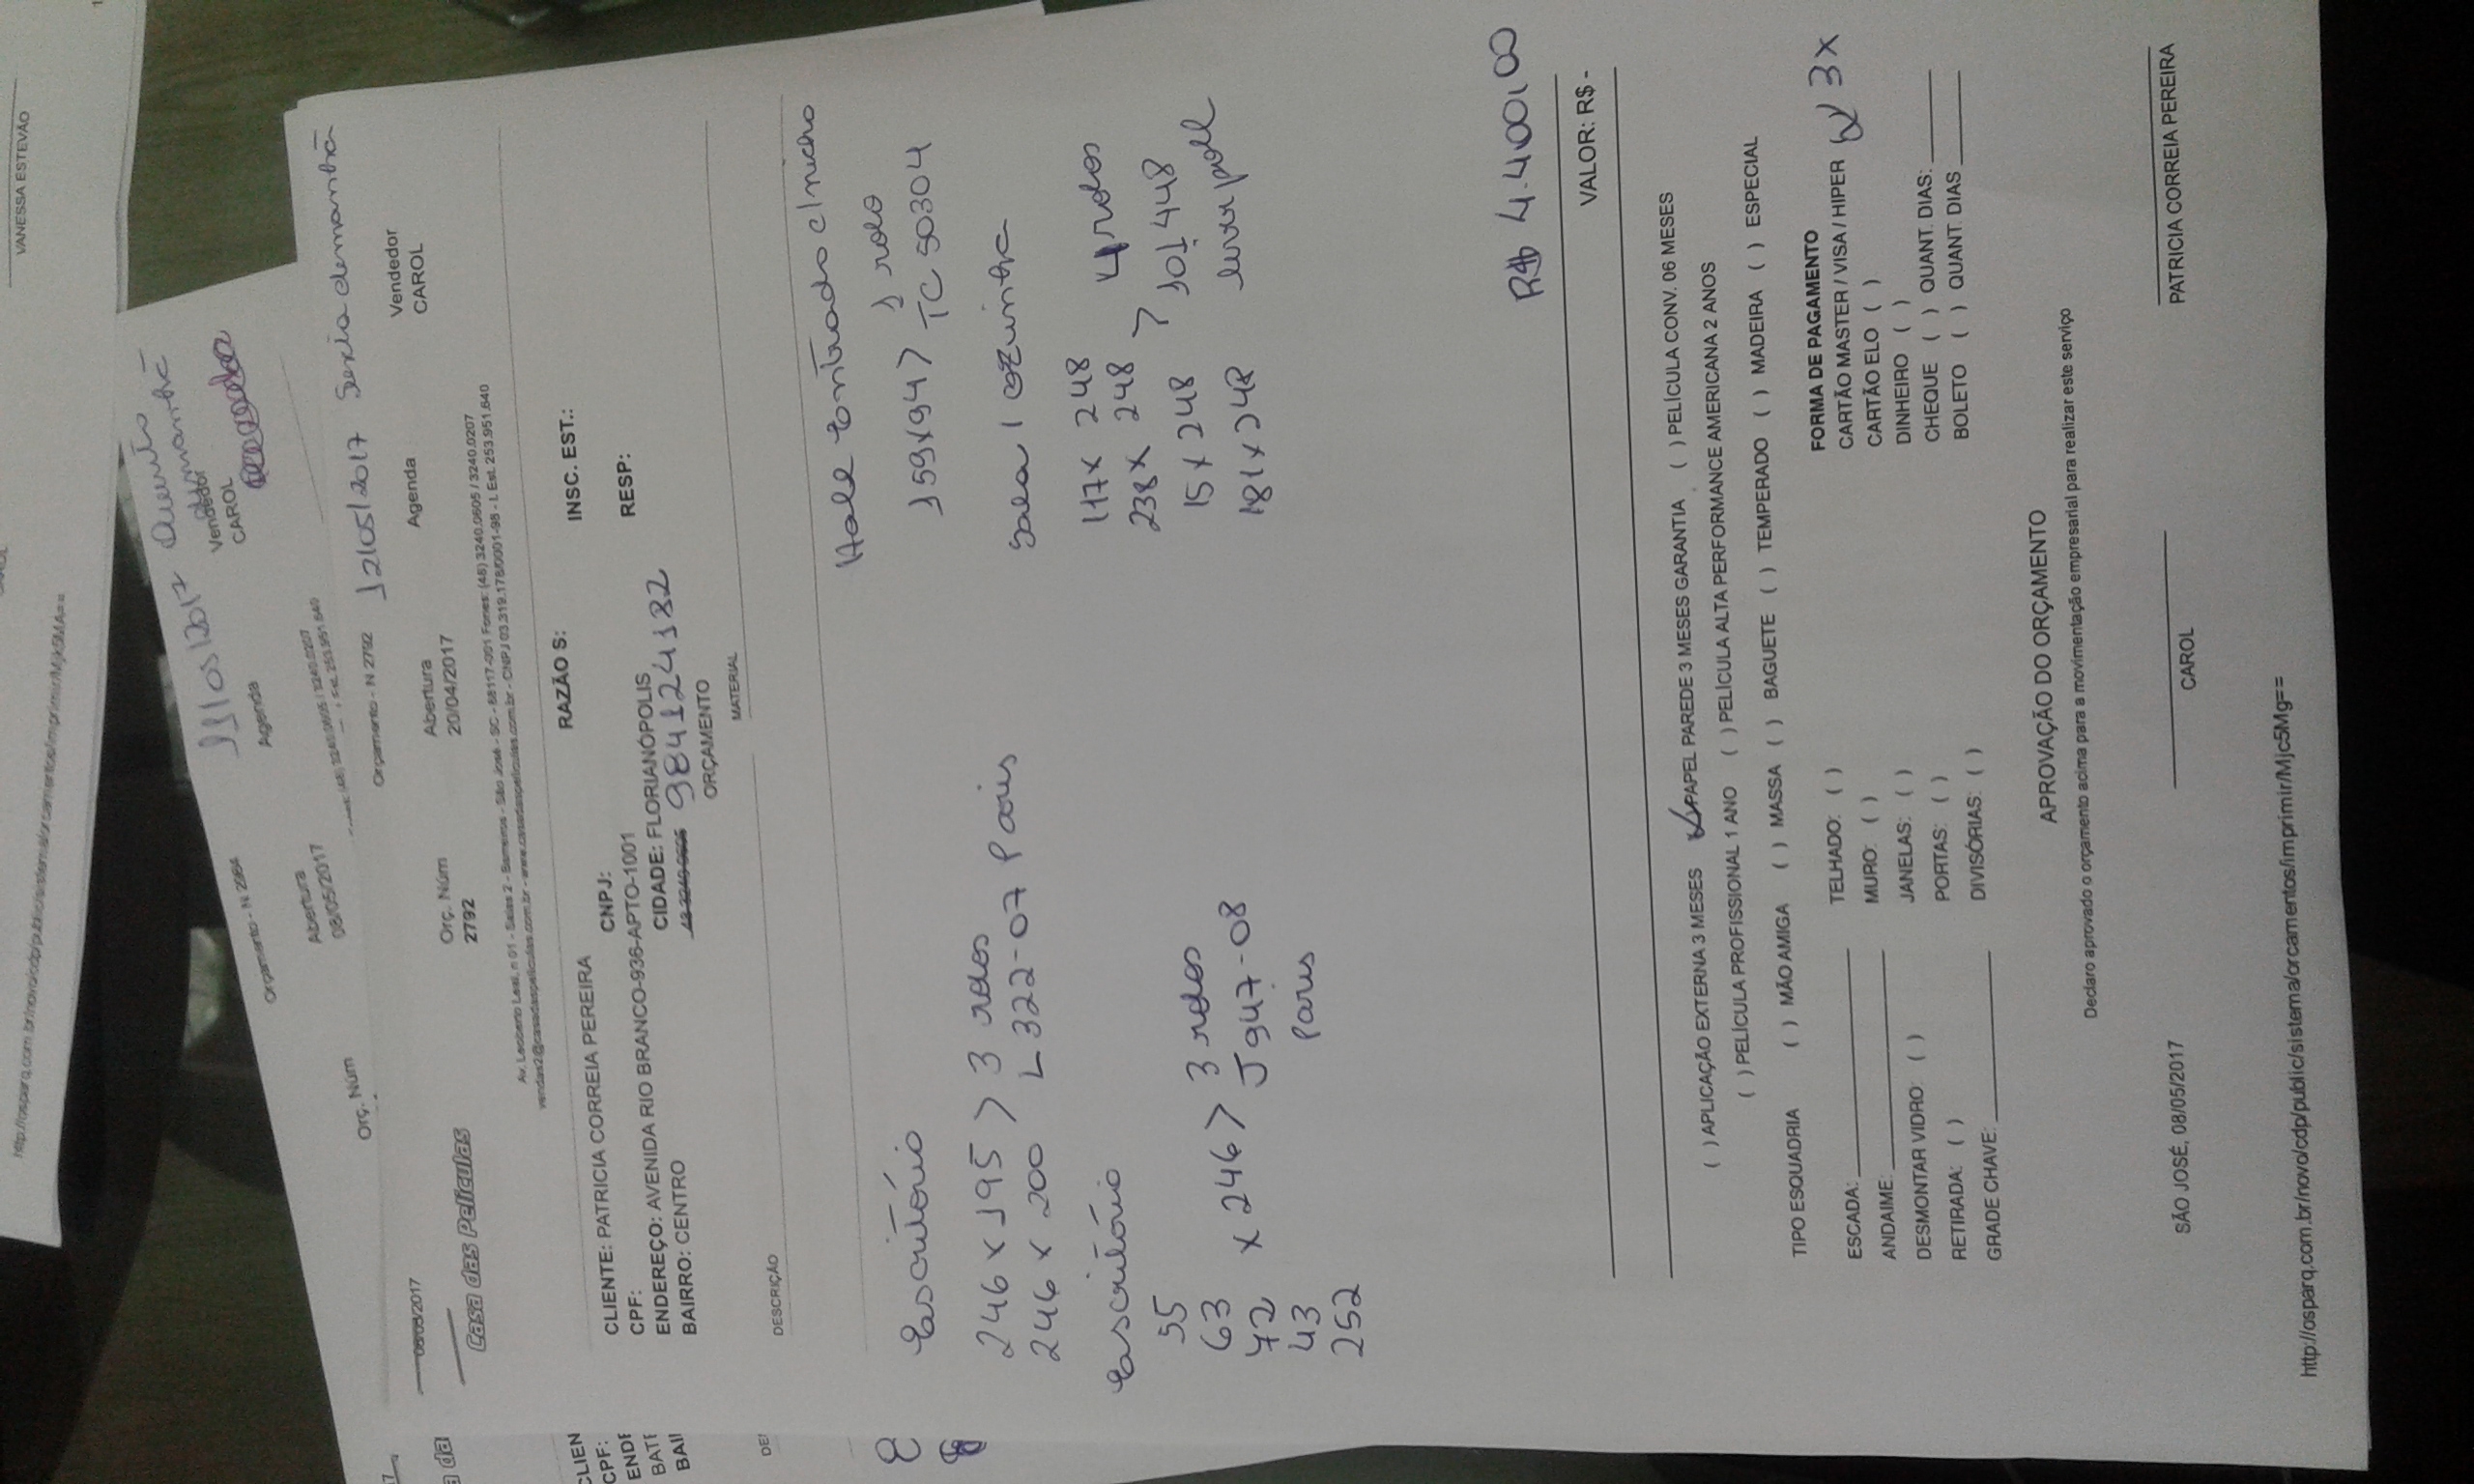 VANESSA ESTEVÃO
11/05/2017 Quinta
Agenda
Vendedor
CAROL
Orç. Núm
Abertura
08/05/2017
08/05/2017
Orçamento - N 2792
12/05/2017 Sexta de manhã
Casa das Películas
Orç. Núm
2792
Abertura
20/04/2017
Agenda
Vendedor
CAROL
Av. Leoberto Leal, n 01 - Salas 2 - Barreiros - São José - SC - 88117-001 Fones: (48) 3240.0605 / 3240.0207
vendas2@casadaspeliculas.com.br - www.casadaspeliculas.com.br - CNPJ 03.319.178/0001-98 - I. Est. 253.951.640
CLIENTE: PATRICIA CORREIA PEREIRA
RAZÃO S:
CPF:
CNPJ:
INSC. EST.:
ENDEREÇO: AVENIDA RIO BRANCO-936-APTO-1001
BAIRRO: CENTRO
CIDADE: FLORIANÓPOLIS
RESP:
984124182
ORÇAMENTO
DESCRIÇÃO
MATERIAL
Escritório
246 x 195 > 3 rolos
246 x 200 L322-07 Paris
Escritório
55
63
72 x 246 > 3 rolos
43 J947-08
252 Paris
Hall entrada c/ nicho
159x947 > 1 rolo
TC 50304
Sala / cozinha
117x 248 4 rolos
238x 248 > 101448
15 x 248
181 x 248
R$ 4.400,00
VALOR: R$ -
( ) APLICAÇÃO EXTERNA 3 MESES (x) PAPEL PAREDE 3 MESES GARANTIA ( ) PELÍCULA CONV. 06 MESES
( ) PELÍCULA PROFISSIONAL 1 ANO ( ) PELÍCULA ALTA PERFORMANCE AMERICANA 2 ANOS
TIPO ESQUADRIA ( ) MÃO AMIGA ( ) MASSA ( ) BAGUETE ( ) TEMPERADO ( ) MADEIRA ( ) ESPECIAL
ESCADA:
ANDAIME:
DESMONTAR VIDRO: ( )
RETIRADA: ( )
GRADE CHAVE:
TELHADO: ( )
MURO: ( )
JANELAS: ( )
PORTAS: ( )
DIVISÓRIAS: ( )
FORMA DE PAGAMENTO
CARTÃO MASTER / VISA / HIPER (x) 3x
CARTÃO ELO ( )
DINHEIRO ( )
CHEQUE ( ) QUANT. DIAS:
BOLETO ( ) QUANT. DIAS
APROVAÇÃO DO ORÇAMENTO
Declaro aprovado o orçamento acima para a movimentação empresarial para realizar este serviço
SÃO JOSÉ, 08/05/2017
CAROL
PATRICIA CORREIA PEREIRA
http://osparq.com.br/novo/cdp/public/sistema/orcamentos/imprimir/Mjc5Mg==